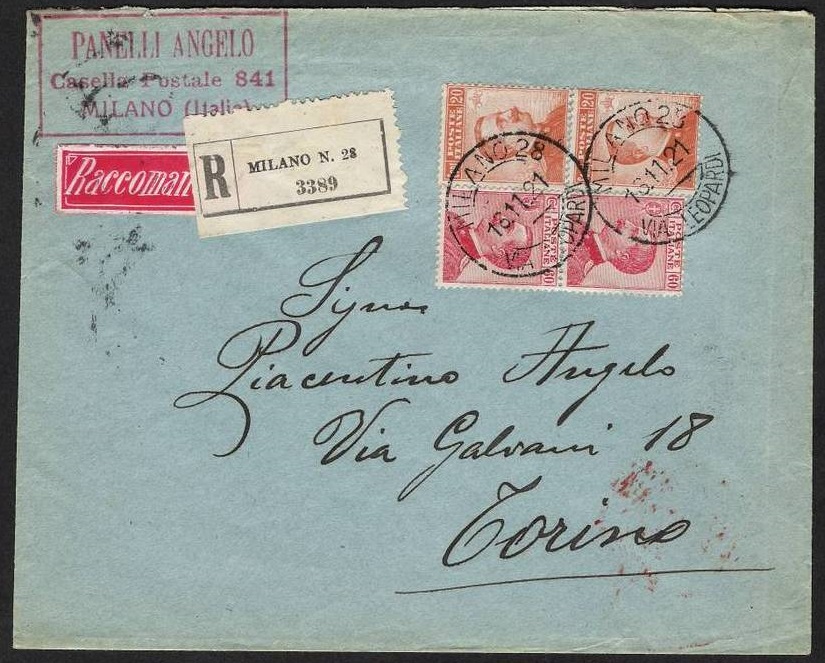 PANELLI ANGELO
Casella Postale 841
MILANO (Italia)
Raccoman
R
MILANO N. 28
3389
20
POSTE ITALIANE
20
POSTE ITALIANE
POSTE ITALIANE
60
POSTE ITALIANE
60
MILANO 28
16.11.21
VIA LEOPARDI
MILANO 28
16.11.21
VIA LEOPARDI
Signor
Piacentino Angelo
Via Galvani 18
Torino